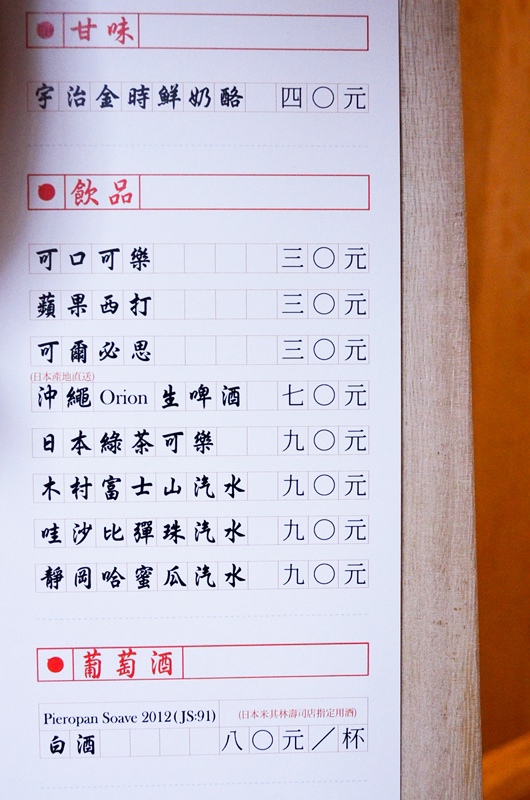 甘味
宇治金時鮮奶酪 四〇元
飲品
可口可樂 三〇元
蘋果西打 三〇元
可爾必思 三〇元
(日本產地直送)
沖繩 Orion 生啤酒 七〇元
日本綠茶可樂 九〇元
木村富士山汽水 九〇元
哇沙比彈珠汽水 九〇元
靜岡哈蜜瓜汽水 九〇元
葡萄酒
Pieropan Soave 2012 (JS:91) (日本米其林壽司店指定用酒)
白酒 八〇元／杯